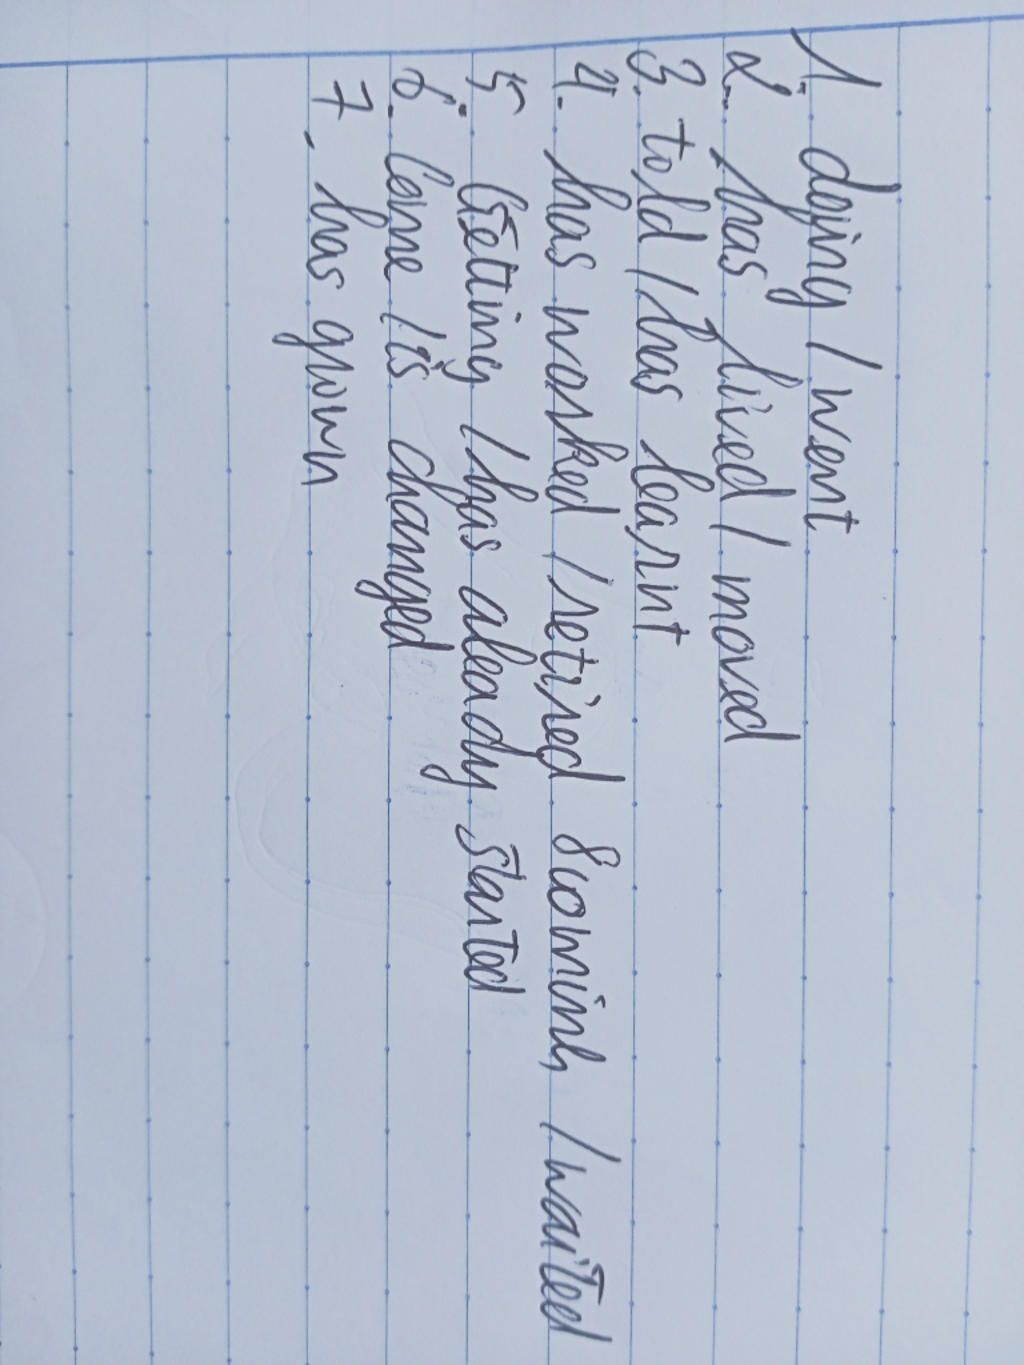 1. doing / went
2. has lived / moved
3. told / has learnt
4. has worked / retired / waited
5. Getting / has aleady started
6. Come / is changed
7. has grown